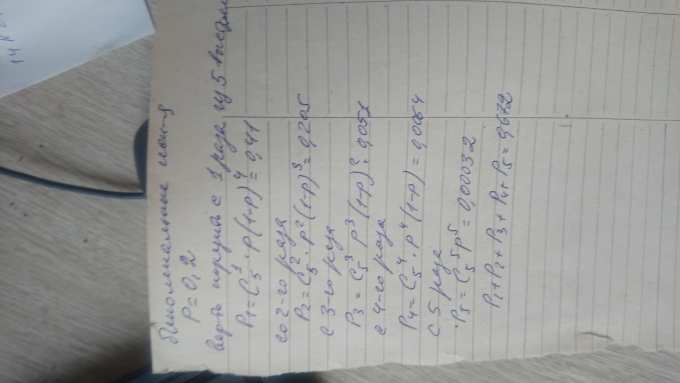 биномиальные испыт-я
P=0,2
вер-ть попасть с 1 раза из 5 выстрелов
P₁ = C₅¹ · p(1-p)⁴ = 0,41
со 2-го раза
P₂ = C₅² · p²(1-p)³ = 0,205
с 3-го раза
P₃ = C₅³ p³(1-p)² = 0,051
с 4-го раза
P₄ = C₅⁴ · p⁴(1-p) = 0,0064
с 5 раза
P₅ = C₅⁵ p⁵ = 0,00032
P₁+P₂+P₃+P₄+P₅ = 0,672